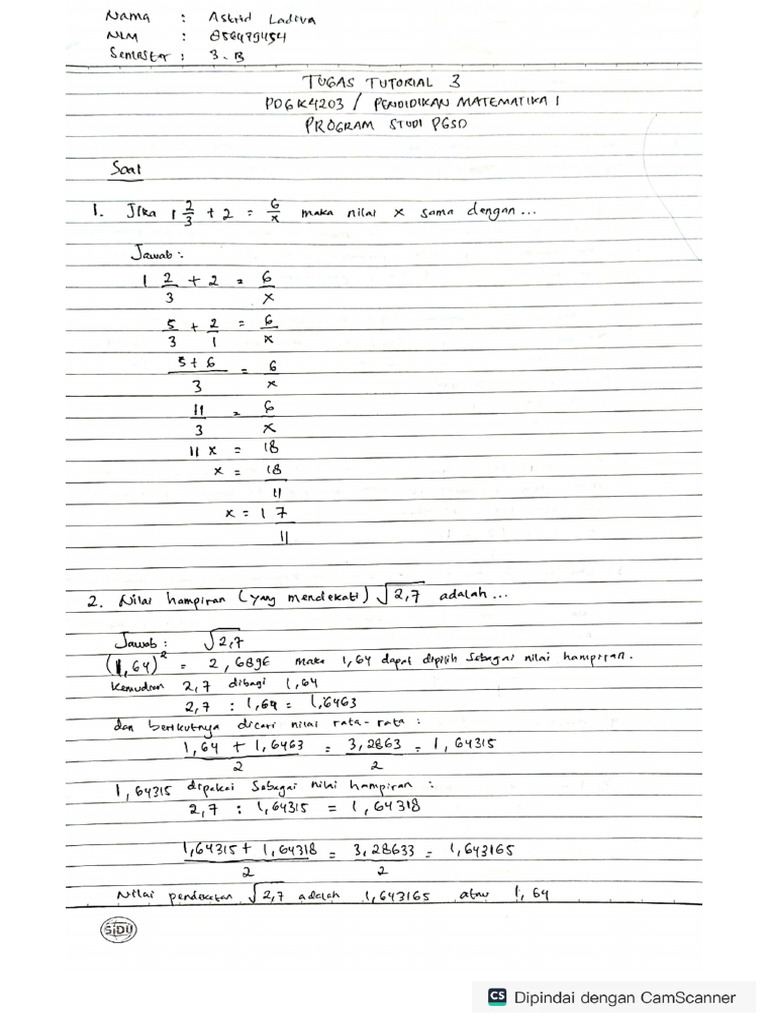 Nama : Astrid Ladiva
NIM : 856479454
Semester : 3.B
TUGAS TUTORIAL 3
PDGK4203 / PENDIDIKAN MATEMATIKA 1
PROGRAM STUDI PGSD
Soal
1. Jika 1 2/3 + 2 = 6/x maka nilai x sama dengan ...
Jawab :
1 2/3 + 2 = 6/x
5/3 + 2/1 = 6/x
5 + 6/3 = 6/x
11/3 = 6/x
11 x = 18
x = 18/11
x = 1 7/11
2. Nilai hampiran (yang mendekati) √2,7 adalah ...
Jawab : √2,7
(1,64)² = 2,6896 maka 1,64 dapat dipilih sebagai nilai hampiran.
Kemudian 2,7 dibagi 1,64
2,7 : 1,64 = 1,6463
dan berikutnya dicari nilai rata-rata :
1,64 + 1,6463/2 = 3,2863/2 = 1,64315
1,64315 dipakai sebagai nilai hampiran :
2,7 : 1,64315 = 1,64318
1,64315 + 1,64318/2 = 3,28633/2 = 1,643165
Nilai pendekatan √2,7 adalah 1,643165 atau 1,64
SIDU
CS Dipindai dengan CamScanner